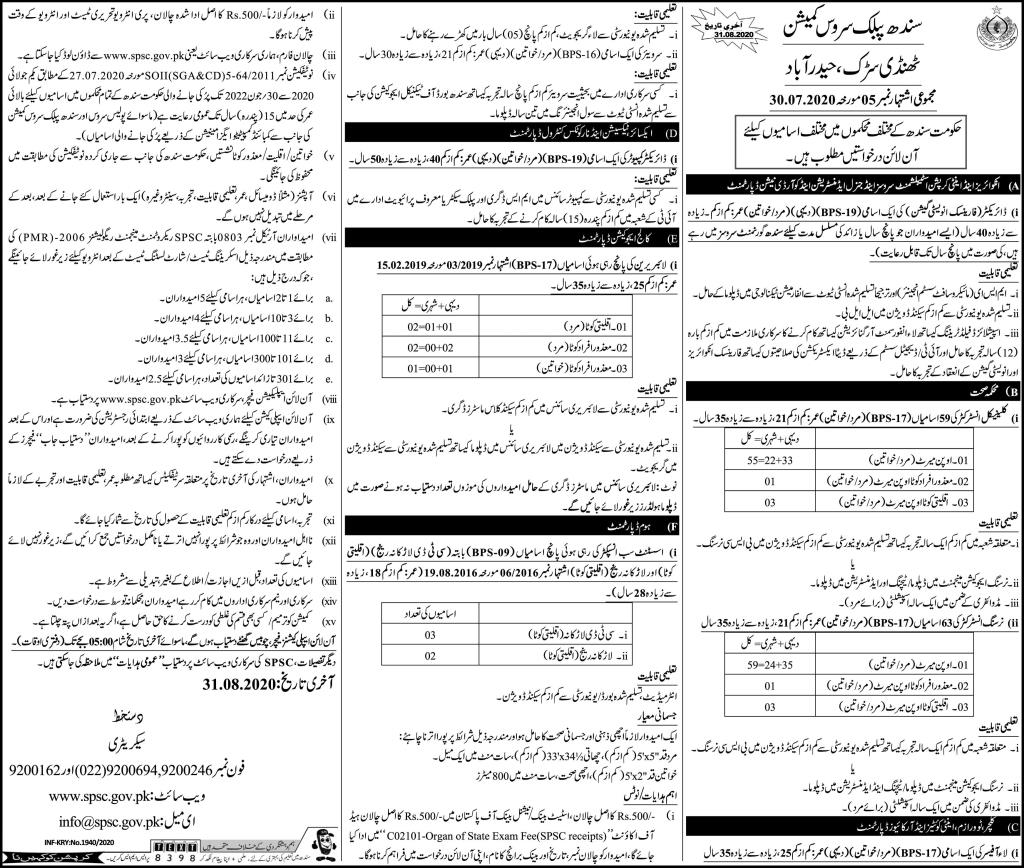 سندھ پبلک سروس کمیشن
ٹھنڈی سڑک، حیدرآباد
مجموعی اشتہار نمبر 05 مورخہ 30.07.2020
آخری تاریخ
31.08.2020
حکومت سندھ کے مختلف محکموں میں مختلف اسامیوں کیلئے
آن لائن درخواستیں مطلوب ہیں۔
A) انکوائریز اینڈ اینٹی کرپشن اسٹیبلشمنٹ سروسز اینڈ جنرل ایڈمنسٹریشن اینڈ کوآرڈی نیشن ڈپارٹمنٹ
i) ڈائریکٹر (فارنسک انویسٹی گیشن) کی ایک اسامی (BPS-19) (دیہی) (مرد/خواتین) عمر: کم از کم۔ زیادہ
سے زیادہ 40 سال (ایسے امیدواران جو پانچ سال یا زائد کی مسلسل مدت کیلئے سندھ گورنمنٹ سروسز میں رہے
ہیں، کی صورت میں پانچ سال تک قابل رعایت)۔
تعلیمی قابلیت
i۔ ایم ایس ای (مائیکروسافٹ سسٹم انجینئر) اور ترجیحا تسلیم شدہ انسٹی ٹیوٹ سے انفارمیشن ٹیکنالوجی میں ڈپلوما کے حامل۔
ii۔ تسلیم شدہ یونیورسٹی سے کم از کم سیکنڈ ڈویژن میں ایل ایل بی۔
iii۔ اسپیشلائزڈ فیلڈ ٹریننگ کیساتھ لاء انفورسمنٹ آرگنائزیشن کیساتھ کام کرنے کا سرکاری ملازمت میں کم از کم بارہ
(12) سالہ تجربہ کا حامل اور آئی ٹی/ ڈیجیٹل سسٹم کے ذریعے ڈیٹا ایکسٹریکشن کی صلاحیتوں کیساتھ فارنسک انکوائریز
اور انویسٹی گیشن کے انعقاد کے تجربہ کا حامل۔
B) محکمہ صحت
i) کلینیکل انسٹرکٹر کی 59 اسامیاں (BPS-17) (مرد/خواتین) عمر: کم از کم 21، زیادہ سے زیادہ 35 سال۔
دیہی + شہری = کل
01۔ اوپن میرٹ (مرد/خواتین) 55=22+33
02۔ معذور افراد کوٹا اوپن میرٹ (مرد/خواتین) 01
03۔ اقلیتی کوٹا اوپن میرٹ (مرد/خواتین) 03
تعلیمی قابلیت
i۔ متعلقہ شعبہ میں کم از کم ایک سالہ تجربہ کیساتھ تسلیم شدہ یونیورسٹی سے کم از کم سیکنڈ ڈویژن میں بی ایس سی نرسنگ۔
یا
ii۔ نرسنگ ایجوکیشن مینجمنٹ میں ڈپلوما/ ٹیچنگ اور ایڈمنسٹریشن میں ڈپلوما۔
iii۔ مڈوائفری کے ضمن میں ایک سالہ اسپیشلٹی (برائے مرد)۔
ii) نرسنگ انسٹرکٹر کی 63 اسامیاں (BPS-17) (مرد/خواتین) عمر: کم از کم 21، زیادہ سے زیادہ 35 سال
دیہی + شہری = کل
01۔ اوپن میرٹ (مرد/خواتین) 59=24+35
02۔ معذور افراد کوٹا اوپن میرٹ (مرد/خواتین) 01
03۔ اقلیتی کوٹا اوپن میرٹ (مرد/خواتین) 03
تعلیمی قابلیت
i۔ متعلقہ شعبہ میں کم از کم ایک سالہ تجربہ کیساتھ تسلیم شدہ یونیورسٹی سے کم از کم سیکنڈ ڈویژن میں بی ایس سی نرسنگ۔
یا
ii۔ نرسنگ ایجوکیشن مینجمنٹ میں ڈپلوما، ٹیچنگ اینڈ ایڈمنسٹریشن میں ڈپلوما۔
iii۔ مڈوائفری کی ضمن میں ایک سالہ اسپیشلٹی (برائے مرد)۔
C) کلچر، ٹوورازم، اینٹی کوئٹیز اینڈ آرکائیوز ڈپارٹمنٹ
i) لاء آفیسر کی ایک اسامی (BPS-17) (مرد/خواتین) (دیہی) عمر: کم از کم 25، زیادہ سے زیادہ 35 سال۔
تعلیمی قابلیت:
i۔ تسلیم شدہ یونیورسٹی سے لاء گریجویٹ، کم از کم پانچ (05) سال بار میں کھڑے رہنے کا حامل۔
ii) سرویئر کی ایک اسامی (BPS-16) (مرد/خواتین) عمر: کم از کم 21، زیادہ سے زیادہ 30 سال۔
تعلیمی قابلیت:
i۔ کسی سرکاری ادارے میں بحیثیت سرویئر کم از کم پانچ سالہ تجربہ کیساتھ سندھ بورڈ آف ٹیکنیکل ایجوکیشن کی جانب
سے تسلیم شدہ انسٹی ٹیوٹ سے سول انجینئرنگ میں تین سالہ ڈپلوما۔
D) ایکسائز ٹیکسیشن اینڈ نارکوٹکس کنٹرول ڈپارٹمنٹ
i) ڈائریکٹر کمپیوٹر کی ایک اسامی (BPS-19) (مرد/خواتین) (دیہی) عمر: کم از کم 40، زیادہ سے زیادہ 50 سال۔
تعلیمی قابلیت
i۔ کسی تسلیم شدہ یونیورسٹی سے کمپیوٹر سائنس میں ایم ایس ڈگری اور پبلک سیکٹر یا معروف پرائیویٹ ادارے میں
آئی ٹی کے شعبہ میں کم از کم پندرہ (15) سالہ کام کرنے کے تجربہ کا حامل۔
E) کالج ایجوکیشن ڈپارٹمنٹ
i) لائبریرین کی پانچ رہی ہوئی اسامیاں (BPS-17) اشتہار نمبر 03/2019 مورخہ 15.02.2019
عمر: کم از کم 25، زیادہ سے زیادہ 35 سال۔
دیہی + شہری = کل
01۔ اقلیتی کوٹا (مرد) 02=01+01
02۔ معذور افراد کوٹا (مرد) 02=00+02
03۔ معذور افراد کوٹا (خواتین) 01=00+01
تعلیمی قابلیت
i۔ تسلیم شدہ یونیورسٹی سے لائبریری سائنس میں کم از کم سیکنڈ کلاس ماسٹرز ڈگری۔
یا
ii۔ تسلیم شدہ یونیورسٹی سے سیکنڈ ڈویژن میں لائبریری سائنس میں ڈپلوما کیساتھ تسلیم شدہ یونیورسٹی سے سیکنڈ ڈویژن
میں گریجویٹ۔
نوٹ: لائبریری سائنس میں ماسٹرز ڈگری کے حامل امیدواروں کی موزوں تعداد دستیاب نہ ہونے صورت میں
ڈپلوما ہولڈرز زیر غور لائے جائیں گے۔
F) ہوم ڈپارٹمنٹ
i) اسسٹنٹ سب انسپکٹر کی رہی ہوئی پانچ اسامیاں (BPS-09) بابتہ (سی ٹی ڈی لاڑکانہ رینج (اقلیتی
کوٹا) اور لاڑکانہ رینج (اقلیتی کوٹا) اشتہار نمبر 06/2016 مورخہ 19.08.2016 (عمر: کم از کم 18، زیادہ
سے زیادہ 28 سال)۔
اسامیوں کی تعداد
i۔ سی ٹی ڈی لاڑکانہ (اقلیتی کوٹا) 03
ii۔ لاڑکانہ رینج (اقلیتی کوٹا) 02
تعلیمی قابلیت
انٹرمیڈیٹ، تسلیم شدہ بورڈ/ یونیورسٹی سے کم از کم سیکنڈ ڈویژن۔
جسمانی معیار
ایک امیدوار لازماً اچھی ذہنی اور جسمانی صحت کا حامل ہو اور مندرجہ ذیل شرائط پر پورا اترنا چاہئے:
مرد قد "5'x5 (کم از کم)، چھاتی 33'x34½ (کم از کم)، سات منٹ میں ایک میل۔
خواتین قد "5'x2 (کم از کم)، اچھی صحت، سات منٹ میں 800 میٹرز
اہم ہدایات/ نوٹس
i) Rs.500/- کا اصل چالان، اسٹیٹ بینک/ نیشنل بینک آف پاکستان میں Rs.500/- کا اصل چالان ہیڈ
آف اکاؤنٹ "C02101-Organ of State Exam Fee(SPSC receipts)" میں ادا کیا
ہوگا۔ امیدوار کو چالان نمبر، تاریخ اور بینک برانچ کا نام، اپنی آن لائن درخواست میں فراہم کرنا ہوگا۔
ii) امیدوار کو لازماً Rs.500/- کا اصل ادا شدہ چالان، پری انٹرویو تحریری ٹیسٹ اور انٹرویو کے وقت
پیش کرنا ہوگا۔
iii) چالان فارم، ہماری سرکاری ویب سائٹ یعنی www.spsc.gov.pk سے ڈاؤن لوڈ کیا جاسکتا ہے۔
iv) نوٹیفکیشن نمبر SOII(SGA&CD)5-64/2011 مورخہ 27.07.2020 کے مطابق یکم جولائی
2020 سے 30 جون 2022 تک پُر کی جانے والی حکومت سندھ کے تمام محکموں میں اسامیوں کیلئے بالائی
عمر کی حد میں 15 (پندرہ) سال تک عمومی رعایت ہے (ماسوائے پولیس سروس اور سندھ پبلک سروس کمیشن
کی جانب سے کمبائنڈ کمپیٹیٹو ایگزامینیشن کے ذریعے پُر کی جانے والی اسامیاں)۔
v) خواتین/ اقلیت/ معذور کوٹا نشستیں، حکومت سندھ کی جانب سے جاری کردہ نوٹیفکیشن کی مطابقت میں
محفوظ کی جائینگی۔
vi) آپشنز (مثلاً ڈومیسائل، عمر، تعلیمی قابلیت، تجربہ، سینٹر وغیرہ) ایک بار استعمال کئے جانے کے بعد، بعد کے
مرحلے میں تبدیل نہیں ہوں گے۔
vii) امیدواران آرٹیکل نمبر 0803 بابتہ SPSC ریکروٹمنٹ مینجمنٹ ریگولیشنز (PMR)-2006 کی
مطابقت میں مندرجہ ذیل اسکریننگ ٹیسٹ/ شارٹ لسٹنگ ٹیسٹ کے بعد انٹرویو کیلئے زیر غور لائے جائینگے
جو کہ درج ذیل ہیں:
a. برائے 1 تا 2 اسامیاں، ہر اسامی کیلئے 5 امیدواران۔
b. برائے 3 تا 10 اسامیاں، ہر اسامی کیلئے 4 امیدواران۔
c. برائے 11 تا 100 اسامیاں، ہر اسامی کیلئے 3.5 امیدواران۔
d. برائے 101 تا 300 اسامیاں، ہر اسامی کیلئے 3 امیدواران۔
e. برائے 301 تا زائد اسامیوں کی تعداد، ہر اسامی کیلئے 2.5 امیدواران۔
viii) آن لائن ایپلیکیشن فیچر، سرکاری ویب سائٹ www.spsc.gov.pk پر دستیاب ہے۔
ix) آن لائن اپیلی کیشن کیلئے ہماری ویب سائٹ کے ذریعے ابتدائی رجسٹریشن کی ضرورت ہے اور اس کے بعد
امیدواران تیاری کرینگے، رسمی کارروائیوں کو پورا کرنے کے بعد، امیدواران "دستیاب جاب" فیچرز کے
ذریعے درخواست دے سکتے ہیں۔
x) امیدواران، اشتہار کی آخری تاریخ پر متعلقہ سرٹیفکیٹس کیساتھ مطلوبہ عمر، تعلیمی قابلیت اور تجربے کے لازماً
حامل ہوں۔
xi) تجربہ، اسامی کیلئے درکار کم از کم تعلیمی قابلیت کے حصول کی تاریخ سے شمار کیا جائے گا۔
xii) نااہل امیدواران اور وہ جو شرائط پر پورا نہیں اترتے یا نامکمل درخواستیں جمع کرائیں گے، زیر غور نہیں لائے
جائیں گے۔
xiii) اسامیوں کی تعداد قبل ازیں اجازت/ اطلاع کے بغیر تبدیلی سے مشروط ہے۔
xiv) سرکاری اور نیم سرکاری اداروں میں کام کر رہے امیدواران محکمانہ توسط سے درخواست دیں۔
xv) کمیشن کو ترمیم/ کسی بھی قسم کی غلطی کو درست کرنے کا حق حاصل ہے، اگر یہ بعد ازاں پتہ چلتا ہے۔
آن لائن اپیلی کیشنز فیچر، چوبیس گھنٹے دستیاب ہوں گے، ماسوائے آخری تاریخ شام 05:00 بجے تک (دفتری اوقات)۔
دیگر تفصیلات، SPSC کی سرکاری ویب سائٹ پر دستیاب "عمومی ہدایات" میں ملاحظہ کی جاسکتی ہیں۔
آخری تاریخ: 31.08.2020
دستخط
سیکریٹری
فون نمبر 9200246, 9200694(022) اور 9200162
ویب سائٹ: www.spsc.gov.pk
ای میل: info@spsc.gov.pk
INF-KRY:No.1940/2020
TEXT
8398
کرپشن کو کہیں نا